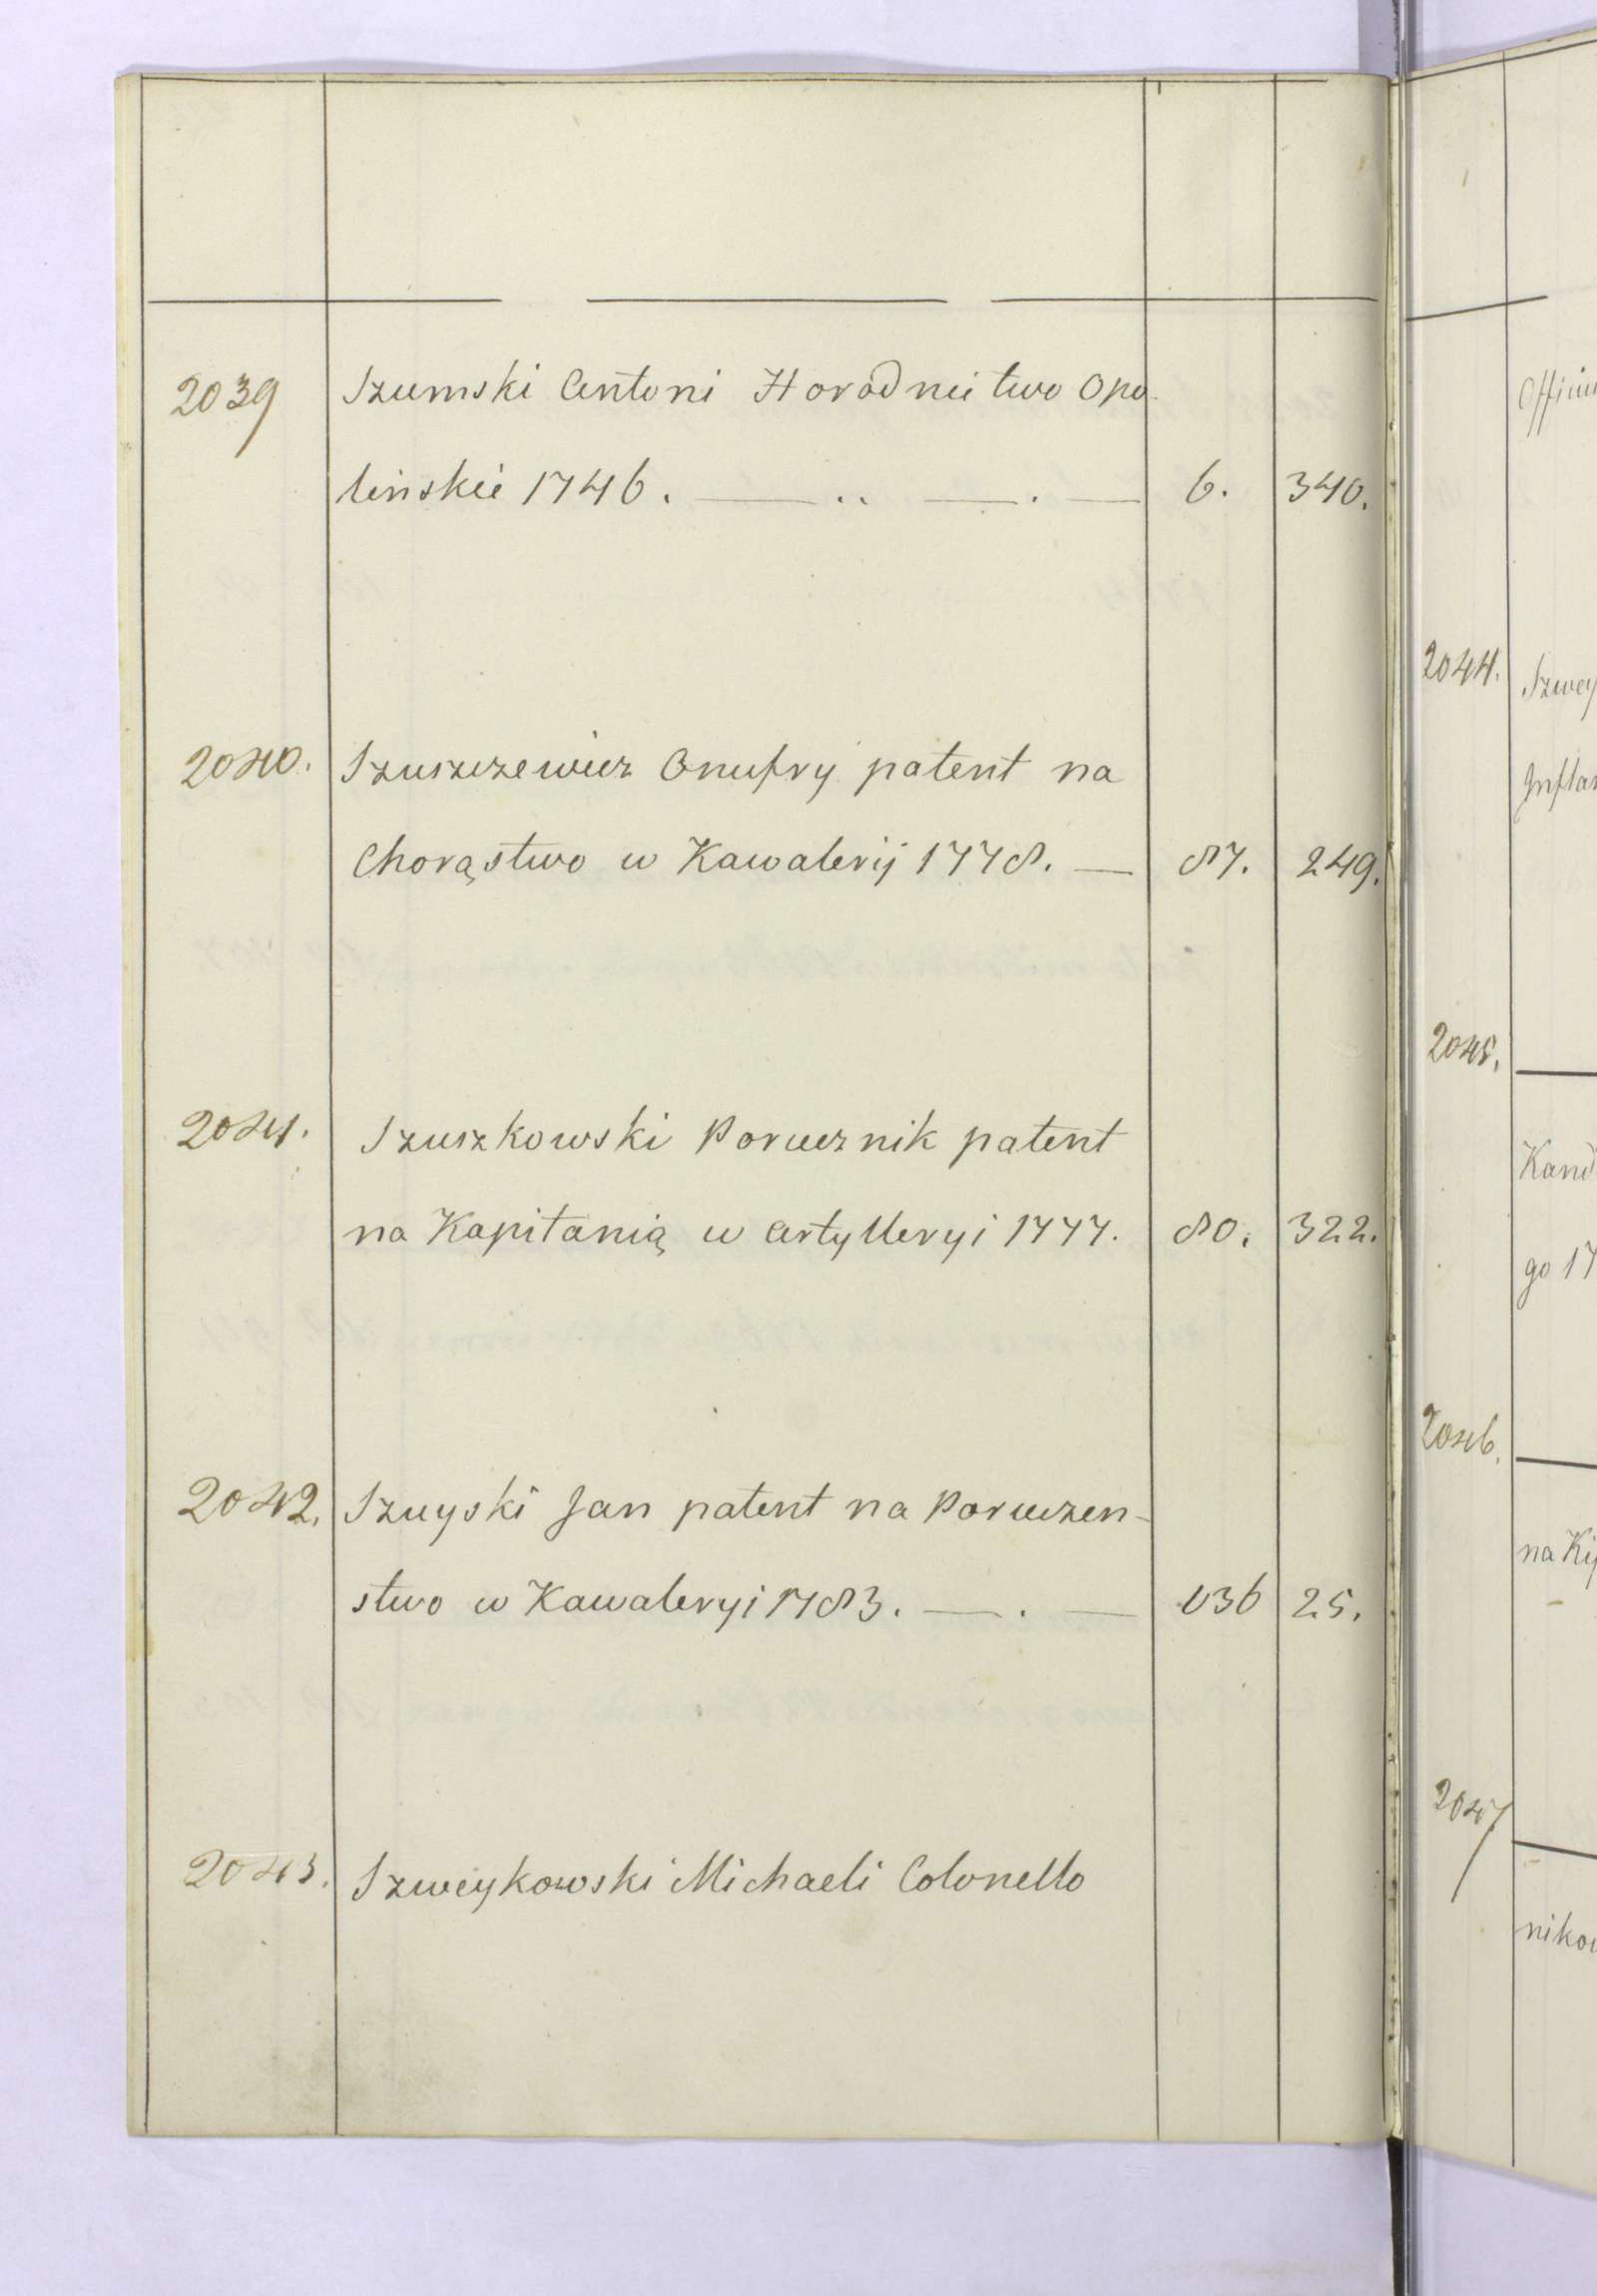 2039 Szumski Antoni Horodnictwo Opo-
lińskie 1746. 6. 340.
2040. Szuszczewicz Onufry patent na
Chorąstwo w Kawaleryj 1778. 87. 249.
2041. Szuszkowski Porucznik patent
na Kapitanią w Artylleryi 1777. 80. 322.
2042. Szuyski Jan patent na Poruczen-
stwo w Kawaleryi 1783. 136 25.
2043. Szweykowski Michaeli Colonello
Offici
2044. Szwey
Inflan
2045.
Kand
go 17
2046.
na Ki
2047
nikow